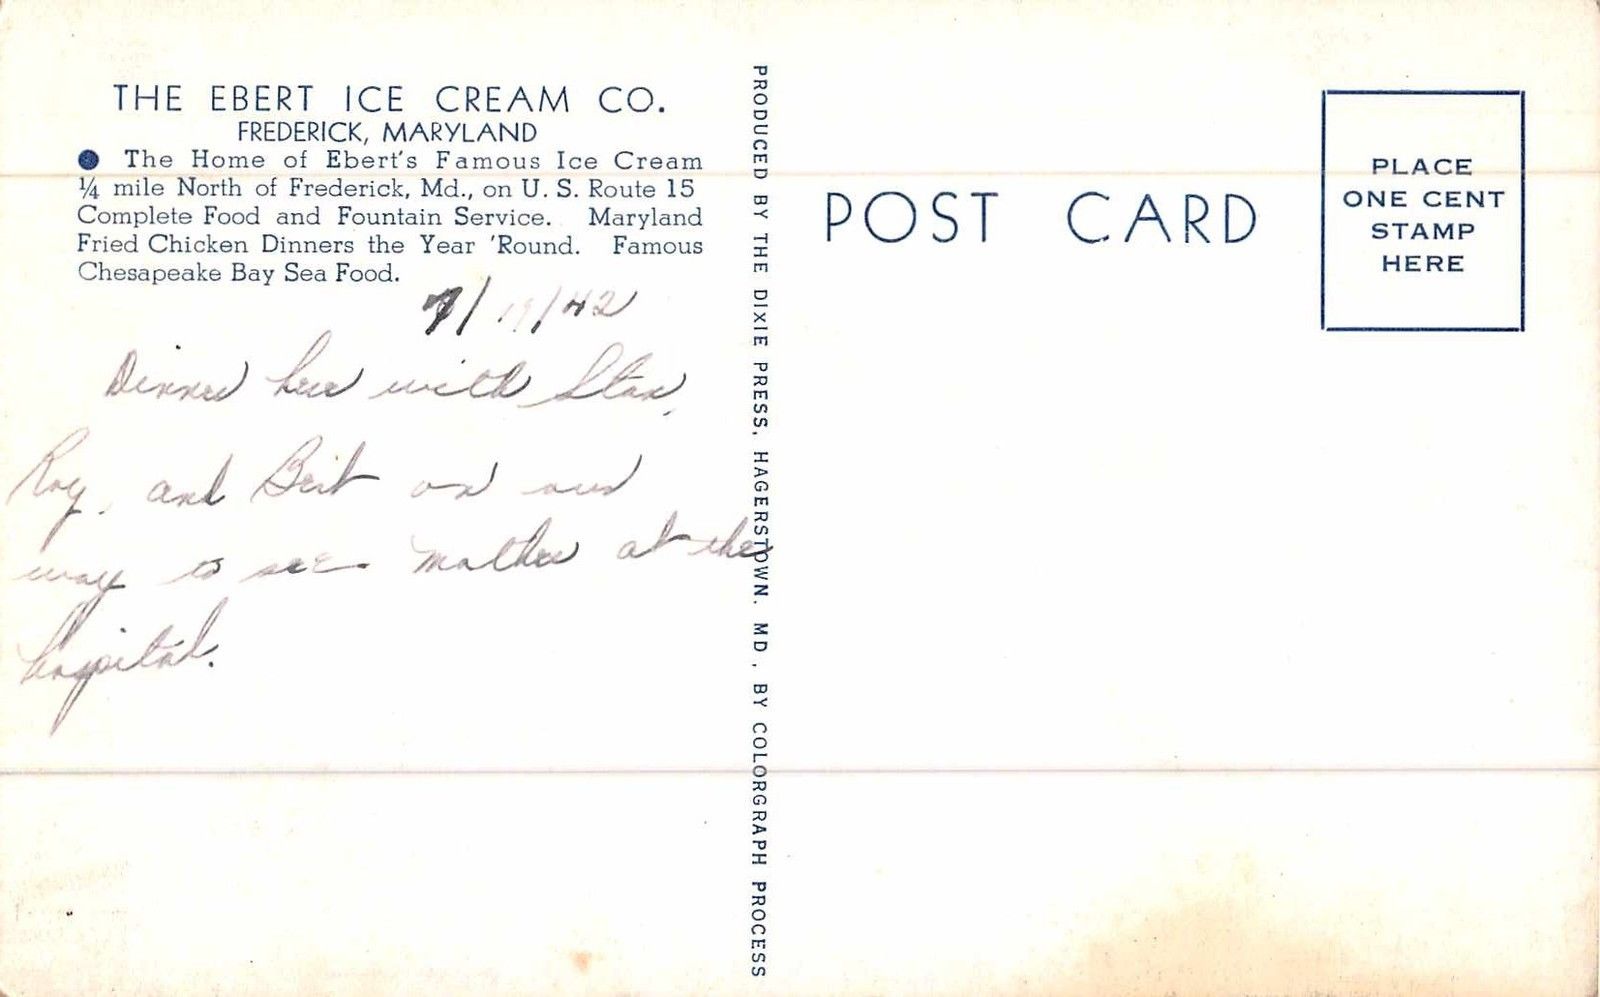 THE EBERT ICE CREAM CO.
FREDERICK, MARYLAND
● The Home of Ebert's Famous Ice Cream
¼ mile North of Frederick, Md., on U. S. Route 15
Complete Food and Fountain Service. Maryland
Fried Chicken Dinners the Year 'Round. Famous
Chesapeake Bay Sea Food.
7/19/42
Dinner here with Stan,
Roy, and Bert on our
way to see Mother at the
hospital.
PRODUCED BY THE DIXIE PRESS, HAGERSTOWN, MD., BY COLORGRAPH PROCESS
POST CARD
PLACE
ONE CENT
STAMP
HERE